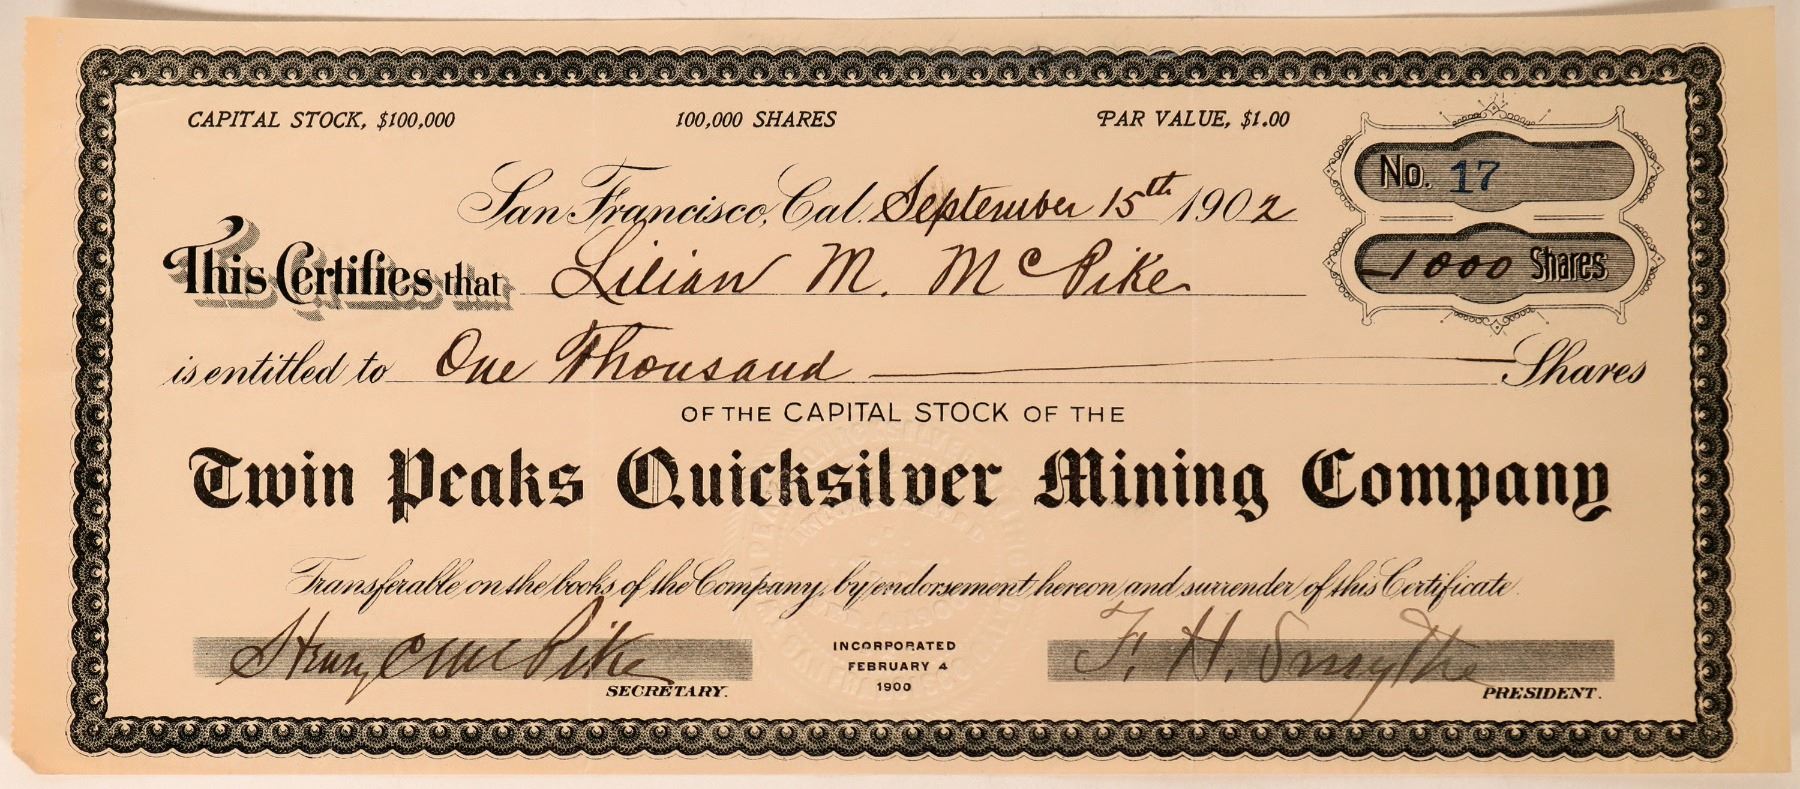 CAPITAL STOCK, $100,000 100,000 SHARES PAR VALUE, $1.00
No. 17
San Francisco, Cal. September 15th 1902
This Certifies that Lilian M. McPike
1000 Shares
is entitled to One Thousand Shares
OF THE CAPITAL STOCK OF THE
Twin Peaks Quicksilver Mining Company
Transferable on the books of the Company, by endorsement hereon and surrender of this Certificate.
Henry C McPike F. H. Smythe
SECRETARY. PRESIDENT.
INCORPORATED
FEBRUARY 4
1900